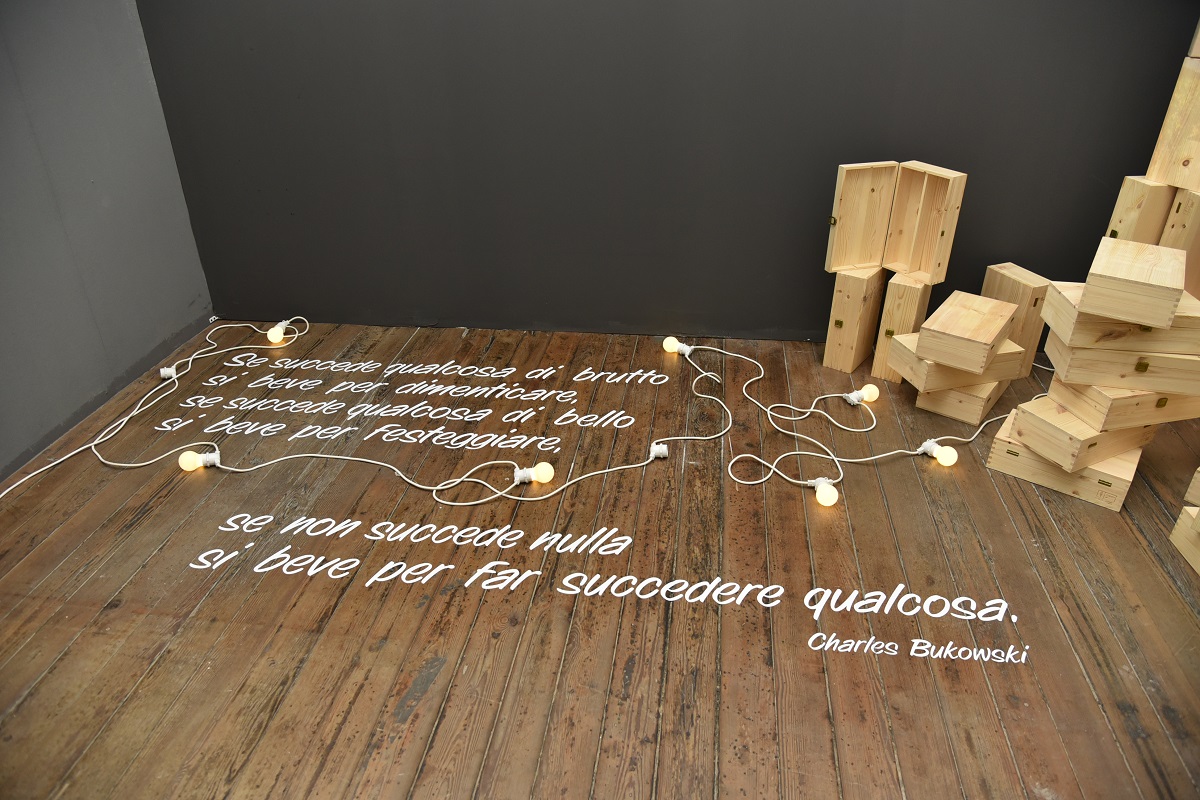 Se succede qualcosa di brutto
si beve per dimenticare,
se succede qualcosa di bello
si beve per festeggiare,
se non succede nulla
si beve per far succedere qualcosa.
Charles Bukowski